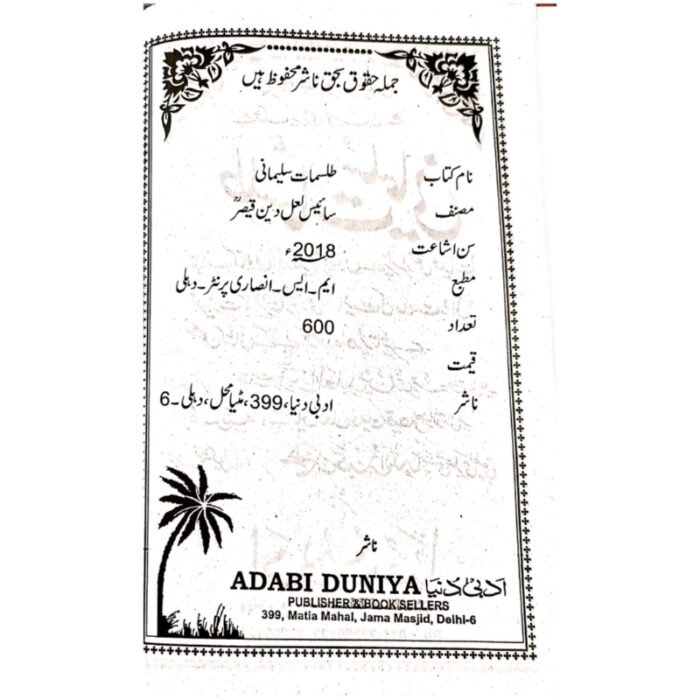 جملہ حقوق بحق ناشر محفوظ ہیں
نام کتاب طلسمات سلیمانی
مصنف سائیس لعل دین قیصرؔ
سن اشاعت 2018ء
مطبع ایم۔ایس۔انصاری پرنٹر۔دہلی
تعداد 600
قیمت
ناشر ادبی دنیا،399،مٹیا محل،دہلی۔6
ناشر
ADABI DUNIYA ادبی دنیا
PUBLISHER & BOOK SELLERS
399, Matia Mahal, Jama Masjid, Delhi-6